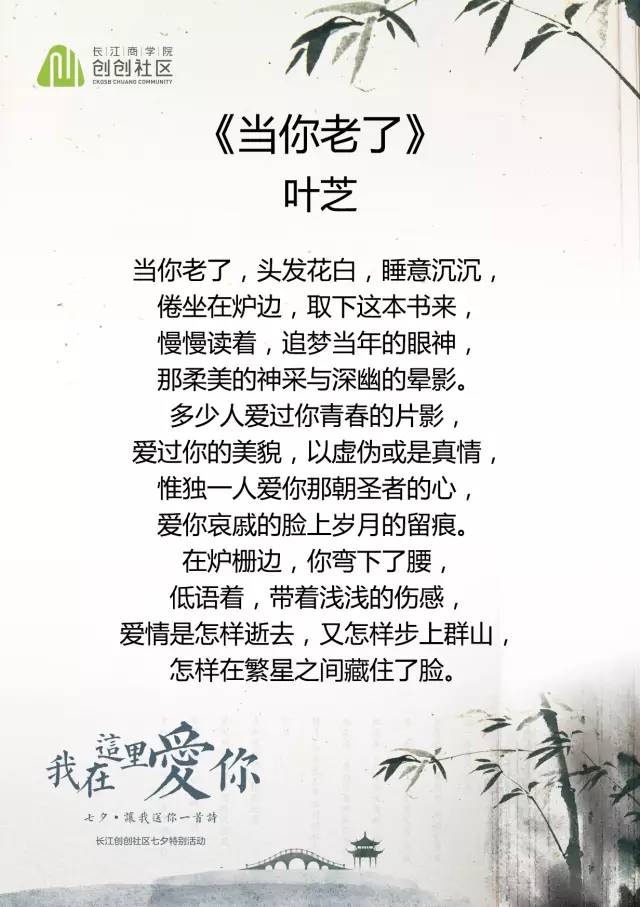 长江商学院
创创社区
CKGSB CHUANG COMMUNITY
《当你老了》
叶芝
当你老了，头发花白，睡意沉沉，
倦坐在炉边，取下这本书来，
慢慢读着，追梦当年的眼神，
那柔美的神采与深幽的晕影。
多少人爱过你青春的片影，
爱过你的美貌，以虚伪或是真情，
惟独一人爱你那朝圣者的心，
爱你哀戚的脸上岁月的留痕。
在炉栅边，你弯下了腰，
低语着，带着浅浅的伤感，
爱情是怎样逝去，又怎样步上群山，
怎样在繁星之间藏住了脸。
我在這里愛你
七夕·讓我送你一首詩
长江创创社区七夕特别活动